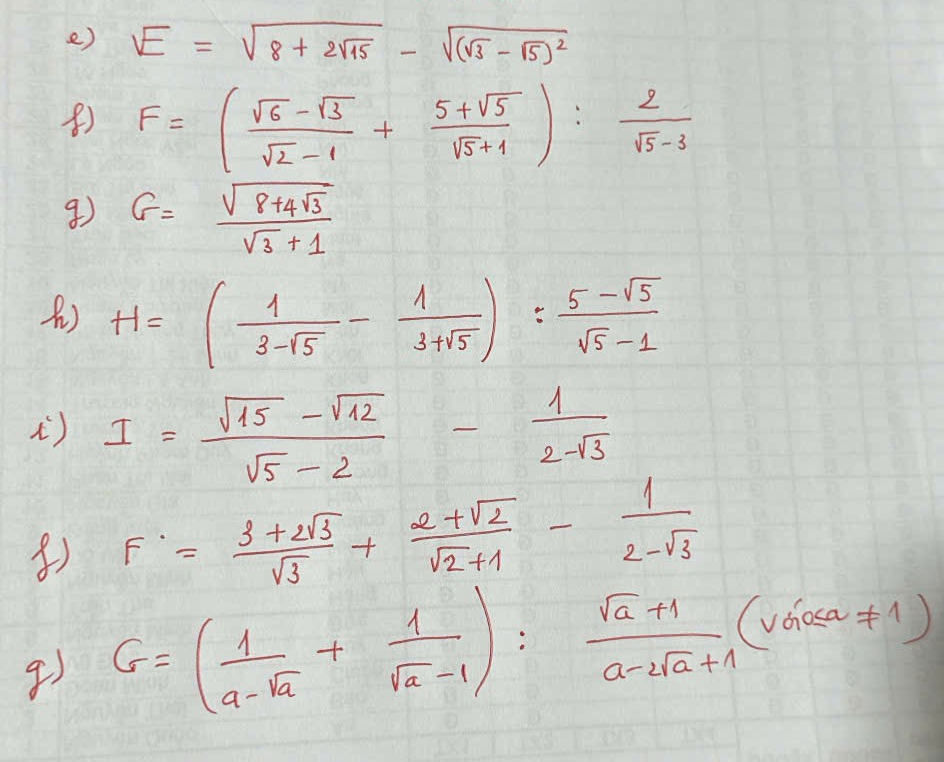 e) √E = √(8 + 2√15) - √((√3 - √5)²)
f) F = ((√6 - √3)/(√2 - 1) + (5 + √5)/(√5 + 1)) : 2/(√5 - 3)
g) G = √(8 + 4√3)/(√3 + 1)
h) H = (1/(3 - √5) - 1/(3 + √5)) : (5 - √5)/(√5 - 1)
i) I = (√15 - √12)/(√5 - 2) - 1/(2 - √3)
f) F = (3 + 2√3)/√3 + (2 + √2)/(√2 + 1) - 1/(2 - √3)
g) G = (1/(a - √a) + 1/(√a - 1)) : (√a + 1)/(a - 2√a + 1) (với 0≤a ≠ 1)